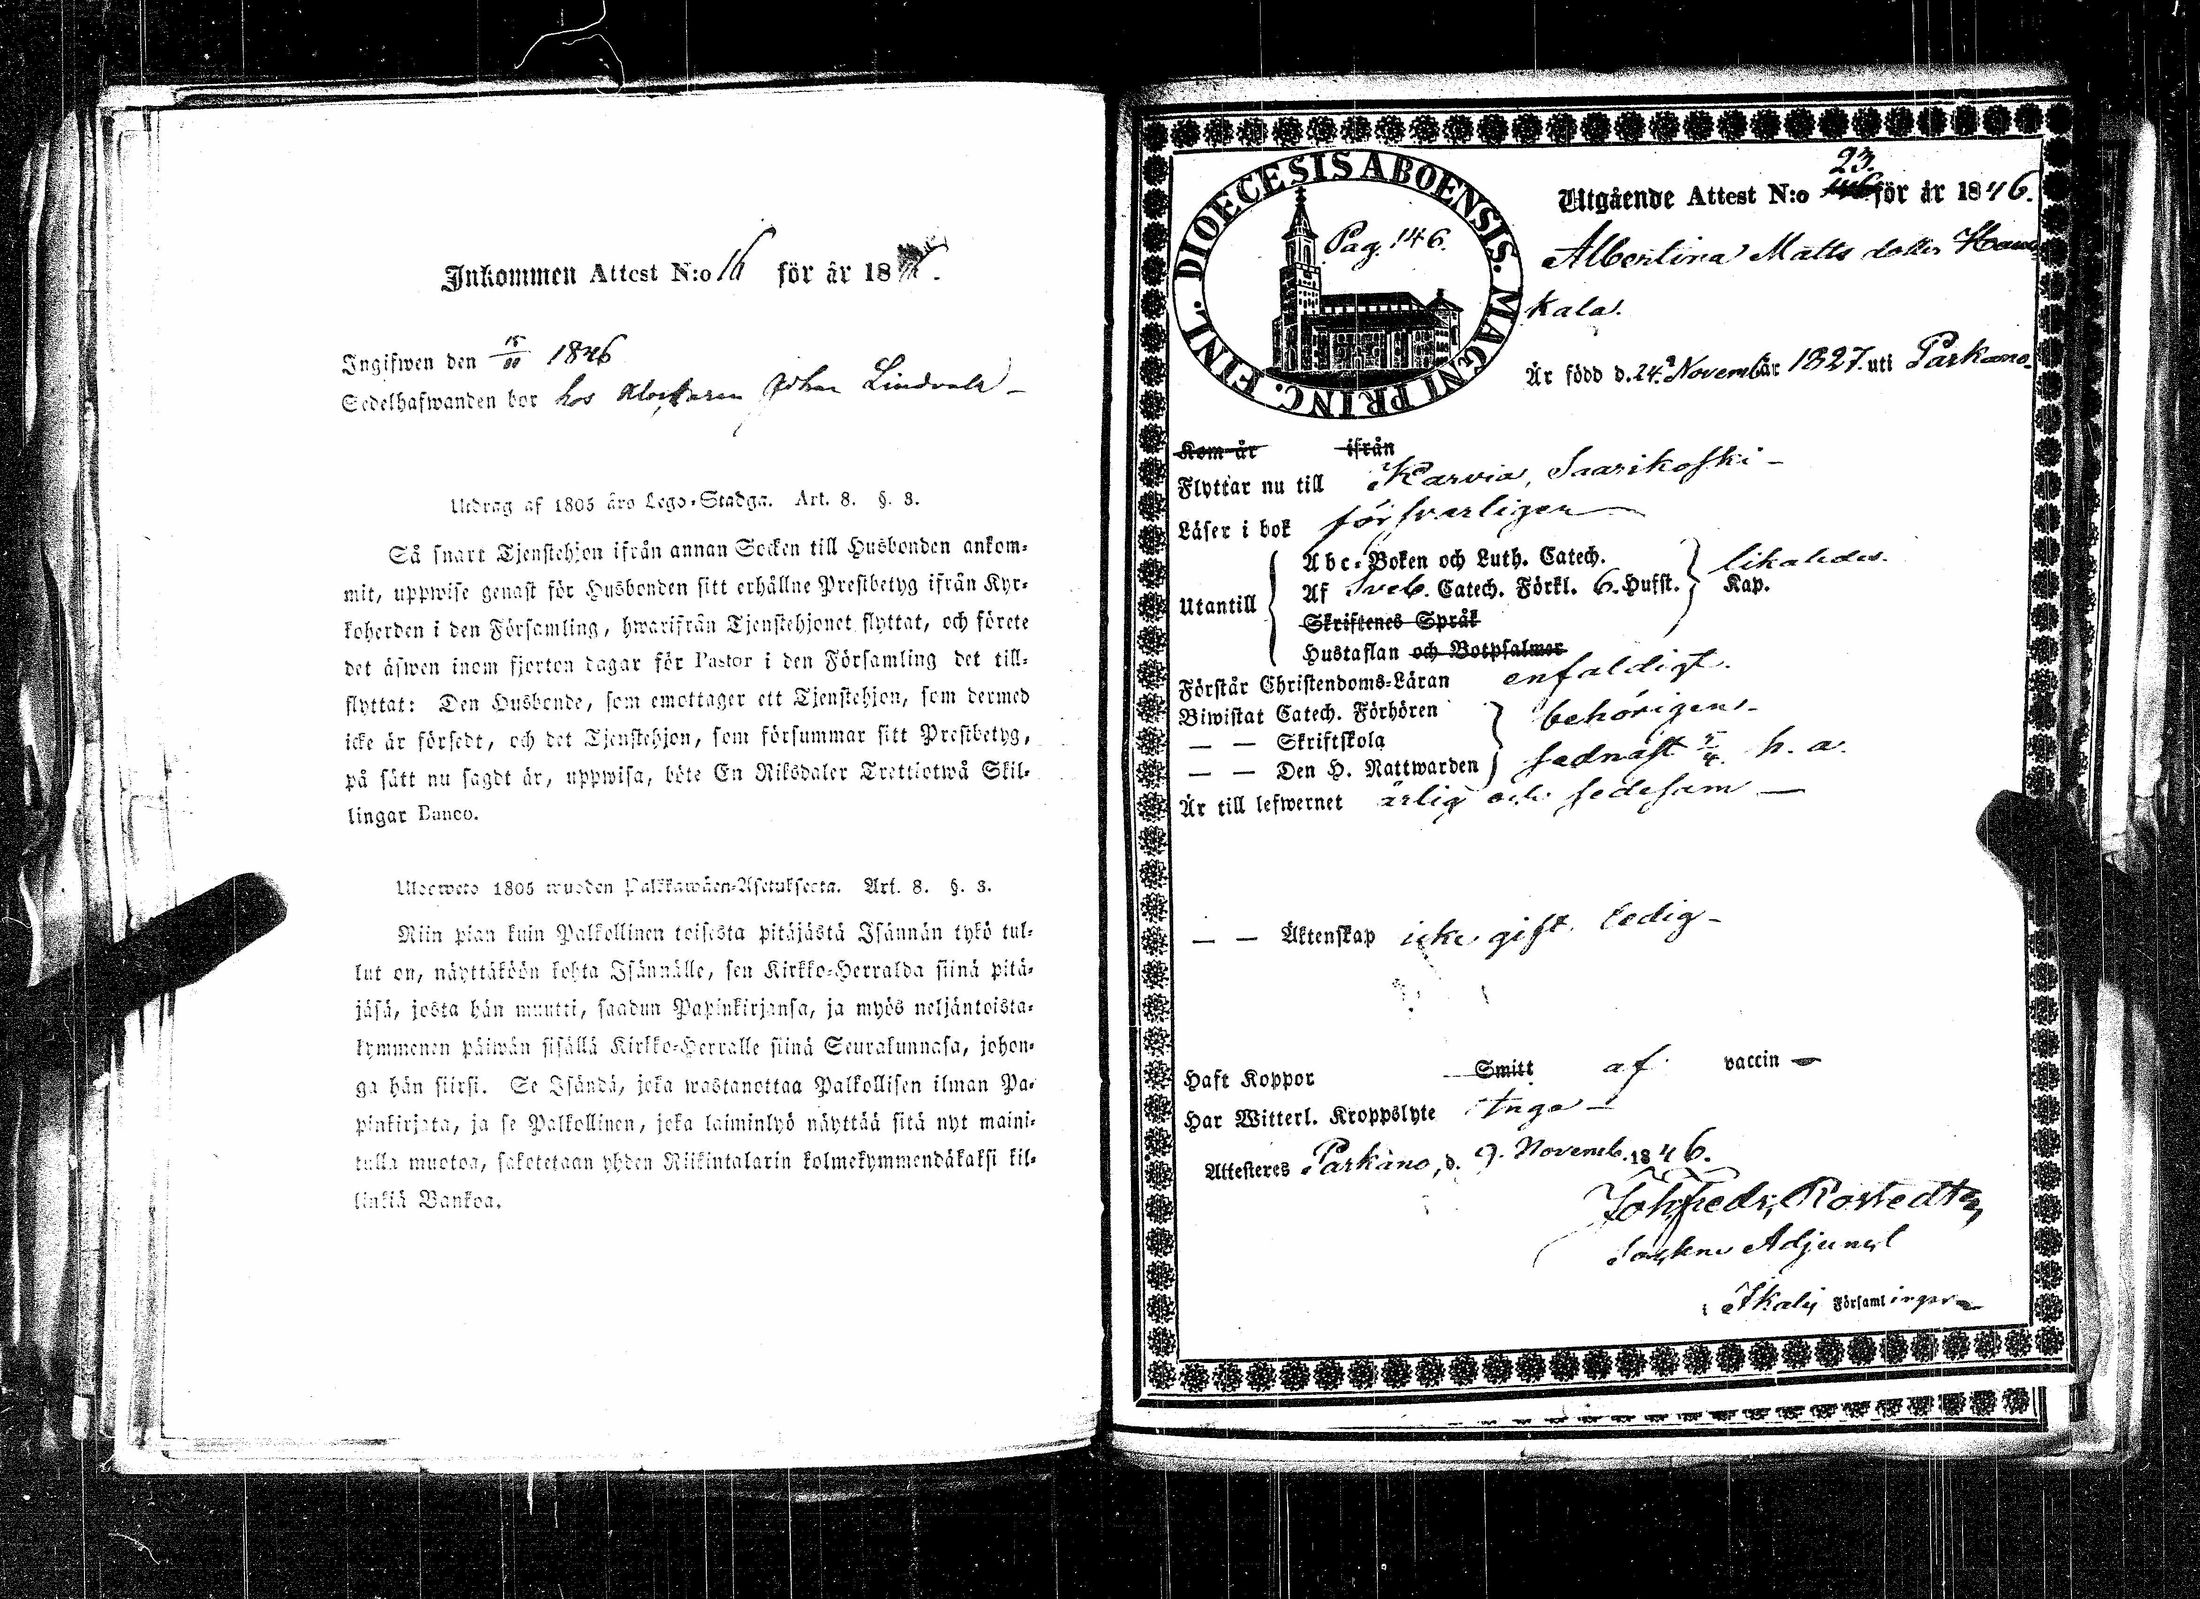 Inkommen Attest N:o 16 för år 18
Ingifwen den 15/11 1846
Sedelhafwanden bor hos Klockaren Johan Lindvall
Utdrag af 1805 års Lego-Stadga. Art. 8. §. 3.
Så snart Tjenstehjon ifrån annan Socken till Husbonden ankom-
mit, uppwise genast för Husbonden sitt erhållne Prestbetyg ifrån Kyr-
koherden i den Församling, hwarifrån Tjenstehjonet flyttat, och förete
det äfwen inom fjorton dagar för Pastor i den Församling det till-
flyttat: Den Husbonde, som emottager ett Tjenstehjon, som dermed
icke är försedt, och det Tjenstehjon, som försummar sitt Prestbetyg,
på sätt nu sagdt är, uppwisa, böte En Riksdaler Trettiotwå Skil-
lingar Banco.
Ulosweto 1805 wuoden Palkkawäen-Asetuksesta. Art. 8. §. 3.
Niin pian kuin Palkollinen toisesta pitäjästä Isännän tykö tul-
lut on, näyttäköön kohta Isännälle, sen Kirkko-Herralda siinä pitä-
jäsä, josta hän muutti, saadun Papinkirjansa, ja myös neljäntoista-
kymmenen päiwän sisällä Kirkko-Herralle siinä Seurakunnasa, johon-
ga hän siirsi. Se Isändä, joka wastanottaa Palkollisen ilman Pa-
pinkirjata, ja se Palkollinen, joka laiminlyö näyttää sitä nyt maini-
tulla muotoa, sakotetaan yhden Riikintalarin kolmekymmendäkaksi kil-
linkiä Bankoa.
DIOECESIS ABOENSIS. MAGNI PRINC. FINL.
Pag. 146.
23.
Utgående Attest N:o för år 1846.
Albertina Matts dotter Kaus
kala.
Är född d. 24. Novemb. år 1827. uti Parkano.
Kom år ifrån
Flyttar nu till Karvia, Saarikoski
Läser i bok försvarligen
Utantill
Abc-Boken och Luth. Catech.
Af Sveb. Catech. Förkl. 6. Hufst. Kap.
likaledes.
Skriftenes Språk
Hustaflan och Botpsalmer
Förstår Christendoms-Läran enfaldigt.
Biwistat Catech. Förhören behörigen
— — Skriftskola
— — Den H. Nattwarden sednast h. a.
Är till lefwernet ärlig och sedesam
— — Äktenskap icke gift. ledig
Haft Koppor Smitt af vaccin
Har Witterl. Kroppslyte Inga
Attesteres Parkano, d. 9. Novemb. 1846.
Joh. Fredr. Rostedt
Sockne Adjunct
i Ikalis Församlingar